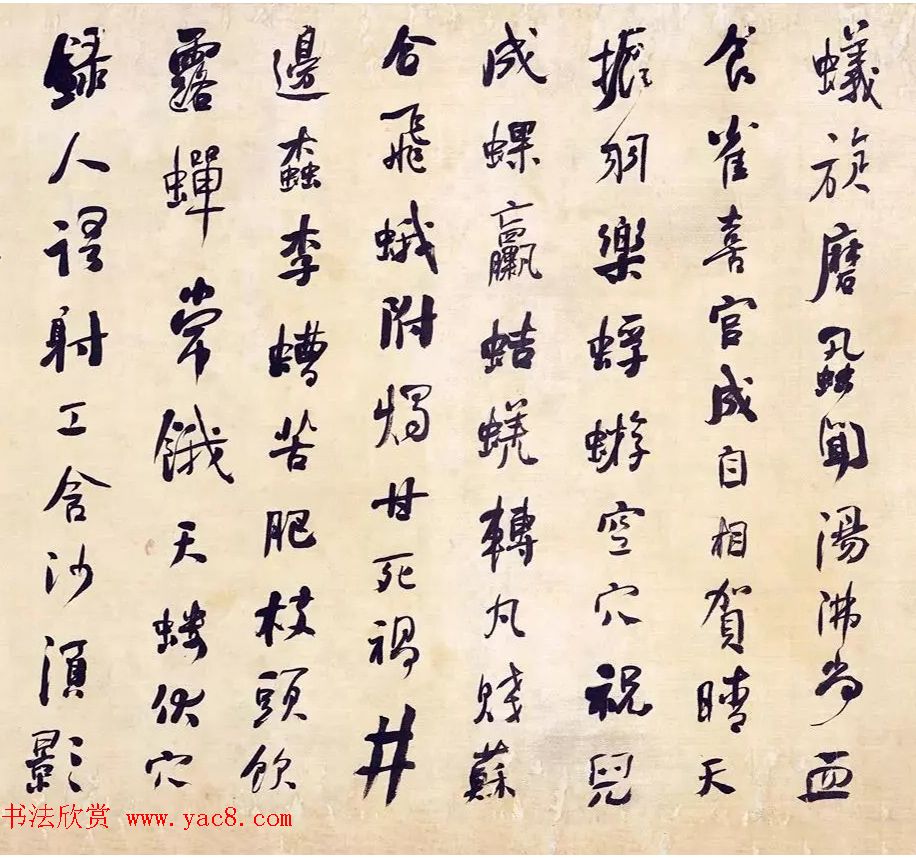 蟻旋磨蝨聞湯沸尚血
食雀喜宮成自相賀晴天
振羽樂蜉蝣空穴祝兒
成蜾蠃蛣蜣轉丸賤蘇
合飛蛾附燭甘死禍井
邊蠹李螬苦肥枝頭飲
露蟬常餓天螻伏穴
錄人語射工含沙須影
书法欣赏 www.yac8.com